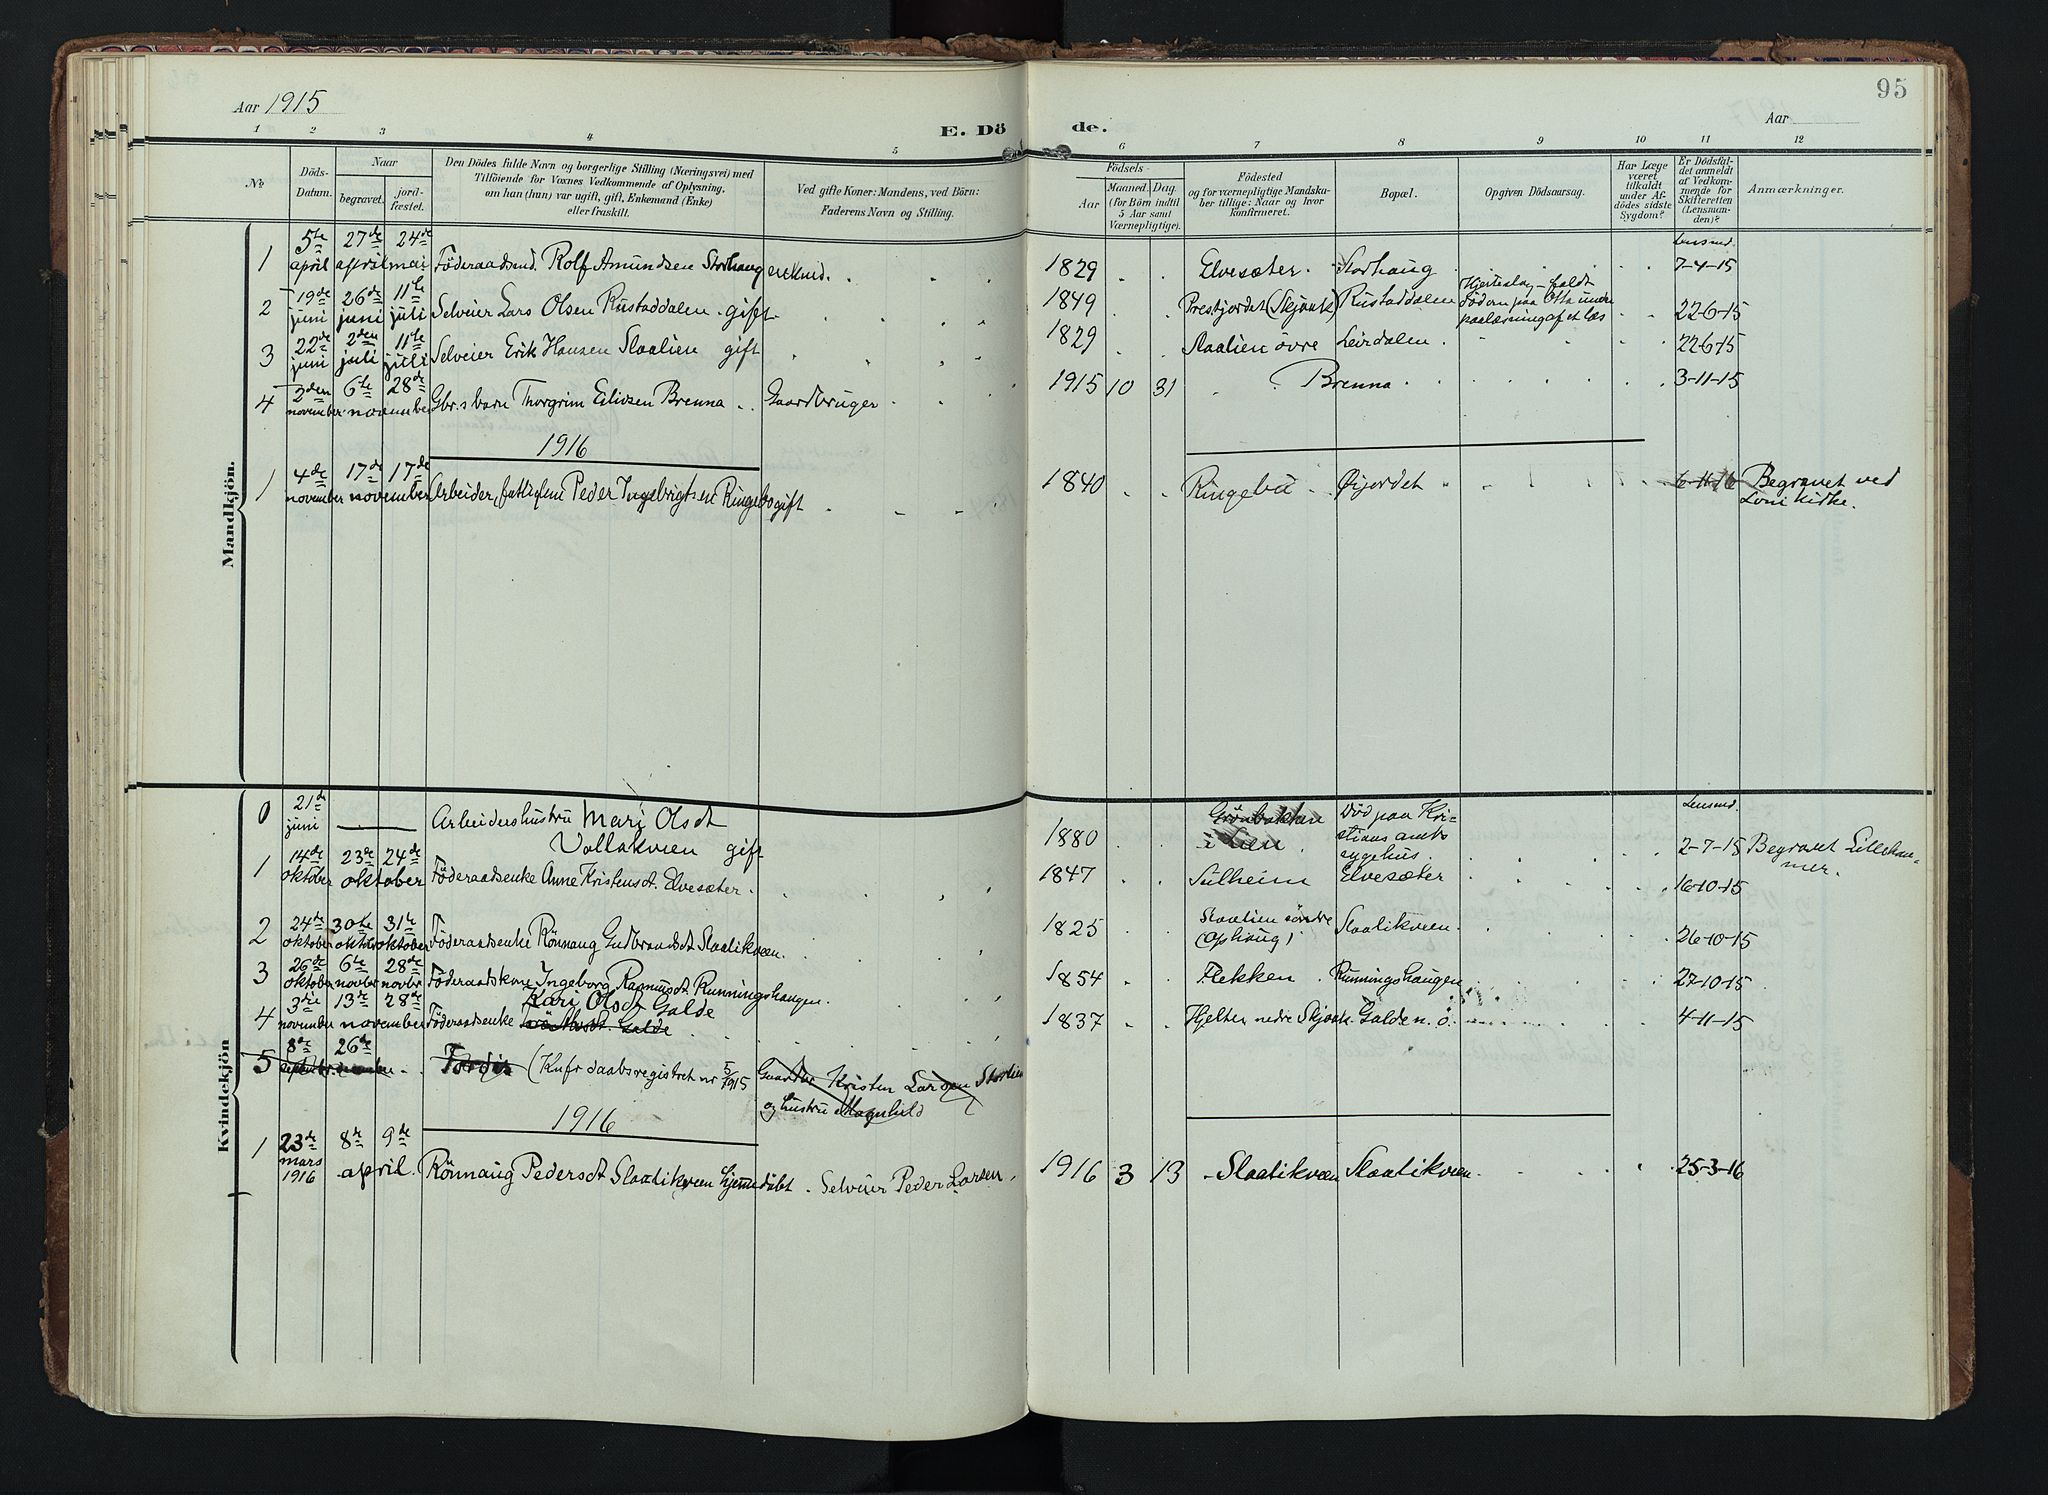 95
Aar 1915
E. Dö de.
Aar
1 2 3 4 5 6 7 8 9 10 11 12
No
Döds-
Datum.
Naar
begravet.
jord-
fæstet.
Den Dödes fulde Navn og borgerlige Stilling (Næringsvei) med
Tilföiende for Voxnes Vedkommende af Oplysning,
om han (hun) var ugift, gift, Enkemand (Enke)
eller fraskilt.
Ved gifte Koner: Mandens, ved Börn:
Faderens Navn og Stilling.
Födsels-
Aar
Maaned. Dag.
(for Börn indtil
5 Aar samt
Værnepligtige).
Födested
og for værnepligtige Mandska-
ber tillige: Naar og hvor
konfirmeret.
Bopæl.
Opgiven Dödsaarsag.
Har Læge
været
tilkaldt
under Af-
dödes sidste
Sygdom?
Er Dödsfal-
det anmeldt
af Vedkom-
mende for
Skifteretten
(Lensman-
den)?
Anmærkninger.
Mandkjön.
1 5te april 27de april 24de mai Föderaadsmd. Rolf Amundsen Storhaug enkmd. 1829 Elvesæter Storhaug Lensmd. 7-4-15
2 19de juni 26de juni 11te juli Selveier Lars Olsen Rustaddalen gift 1849 Prestjordet (Skjaak) Rustaddalen Hjerteslag - faldt
döden paa Otta under
paalæsning af et læs 22-6-15
3 22de juni 2den juli 11te juli Selveier Erik Hansen Slaalien gift 1829 Slaalien övre Leirdalen 22-6-15
4 2den november 6te november 28de november Gbr.s barn Thorgrim Eilivsen Brenna Gaardbruger 1915 10 31 Brenna 3-11-15
1916
1 4de november 17de november 17de november Arbeider, fattiglem Peder Ingebrigtsen Ringebo gift 1840 Ringebu Øijordet 6-11-16 Begravet ved
Lom kirke.
Kvindekjön
0 21de juni — Arbeidershustru Mari Olsdt
Vollakveen gift 1880 Grönbakken
i Lien Död paa Kri-
stians amts
sygehus. Lensmd. 2-7-15 Begravet Lilleham-
mer.
1 14de oktober 23de oktober 24de oktober Föderaadsenke Anne Kristensdt. Elvesæter 1847 Sulheim Elvesæter 16-10-15
2 24de oktober 30te oktbr 31te oktober Föderaadsenke Rönnaug Gudbrandsdt Slaalikveen. 1825 Slaalien söndre
(Ophaug) Slaalikveen 26-10-15
3 26de oktober 6te novbr 28de novbr Föderaadskone Ingeborg Rasmusdt Runningshaugen. 1854 Flekken Runningshaugen 27-10-15
4 3die november 13de november 28de november Föderaadsenke Kari Olsdt Galde Galde 1837 Hjelten nedre Skjaak. Galden ö. 4-11-15
5 8de 26de Tordis (Knfr daabsregistret nr 5/1915 Gaardbr Kristen Larsen Storlien
og hustru Magnhild
1916
1 23de mars 1916 8de april 9de Rönnaug Pedersdt Slaalikveen hjemmedöbt Selveier Peder Larsen 1916 3 13 Slaalikveen Slaalikveen 25-3-16